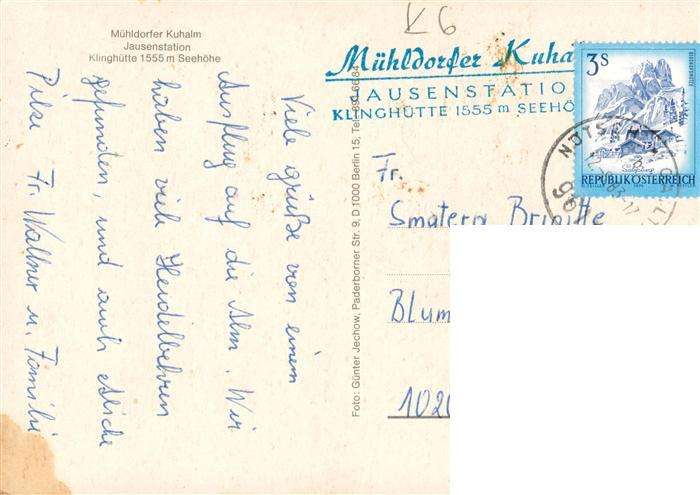 Mühldorfer Kuhalm
Jausenstation
Klinghütte 1555 m Seehöhe
K6
Mühldorfer Kuha
JAUSENSTATIO
KLINGHÜTTE 1555 m SEEHÖ
3S
REPUBLIK ÖSTERREICH
NÖTSCH
Foto: Günter Jechow, Paderborner Str. 9, D 1000 Berlin 15, Tel.
Viele grüße von einem
Ausflug auf die Alm. Wir
haben viele Heidelbeeren
gefunden, und auch etliche
Pilze Fr. Wallner u. Familie
Fr.
Smatera Brigitte
Blum
1020